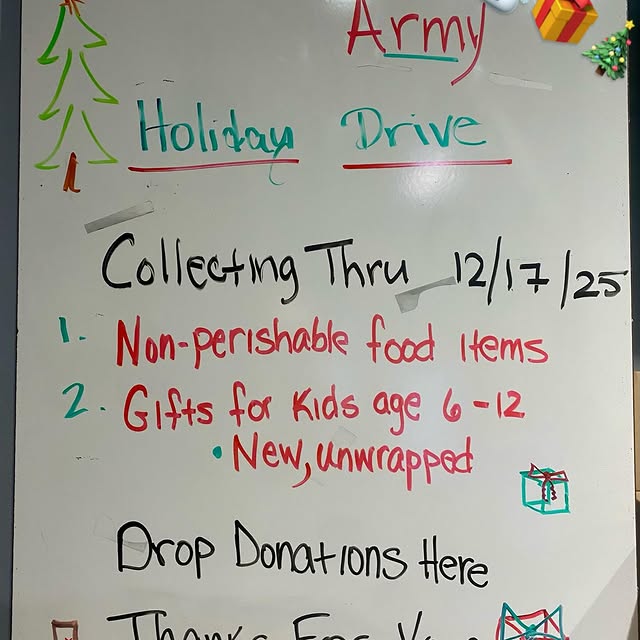 Army
Holiday Drive
Collecting Thru 12/17/25
1. Non-perishable food items
2. Gifts for Kids age 6-12
• New, unwrapped
Drop Donations Here
Thanks For